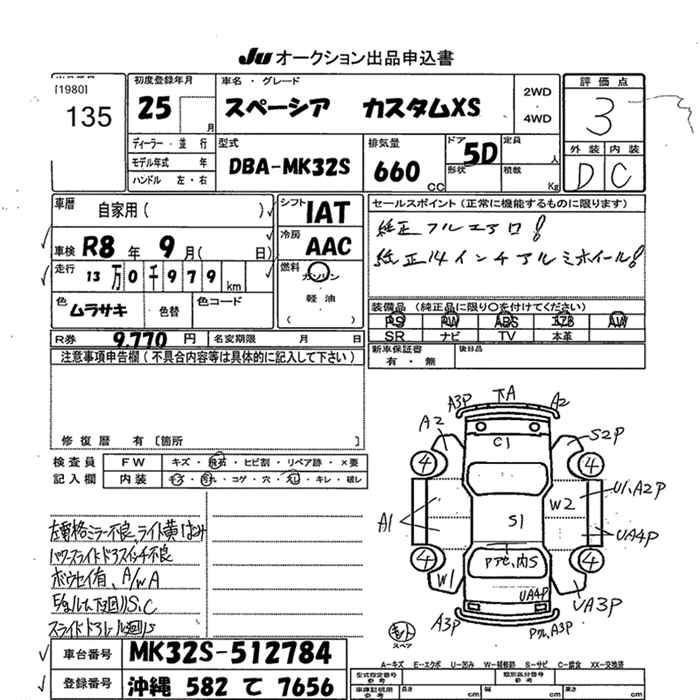 Ju オークション出品申込書
[1980]
135
初度登録年月
25 月
車名・グレード
スペーシア カスタムXS
2WD
・
4WD
評価点
3
外装 内装
D C
ディーラー・並行
モデル年式 年
ハンドル 左・右
型式
DBA-MK32S
排気量
660 CC
ドア 5D
形状
定員 人
積載 Kg
車歴 自家用( )
車検 R8年 9月( 日)
走行 13万0千979km
色 ムラサキ 色替 色コード
シフト IAT
冷房 AAC
燃料 ガソリン
・
軽油
( )
セールスポイント(正常に機能するものに限ります)
純正フルエアロ!
純正14インチアルミホイール!
装備品(純正品に限り○を付けてください)
PS PW ABS エアB AW
SR ナビ TV 本革
新車保証書 後日品
有・無
R券 9,770円 名変期限 月 日
注意事項申告欄(不具合内容等は具体的に記入して下さい)
修復歴 有[箇所 ]
検査員 FW キズ・飛石・ヒビ割・リペア跡・×要
記入欄 内装 キズ・汚れ・コゲ・穴・スレ・キレ・破レ
左電格ミラー不良、ライト黄ばみ
パワースライドドアスイッチ不良
ボウセイ有、A/WA
S,C
A3P 下A A2
A2 C1 S2P
4 4
A1 W2 U1、A2P
S1 UA4P
4 4
W1 UA4P UA3P
A3P A3P
キット
スペア
A-キズ E-エクボ U-凹み W-補修跡 S-サビ C-腐食 XX-交換済
車台番号 MK32S-512784
登録番号 沖縄 582 て 7656
型式指定番号 類別区分番号
参考 参考
車庫証明用 長さ cm 幅 cm 高さ cm
参考